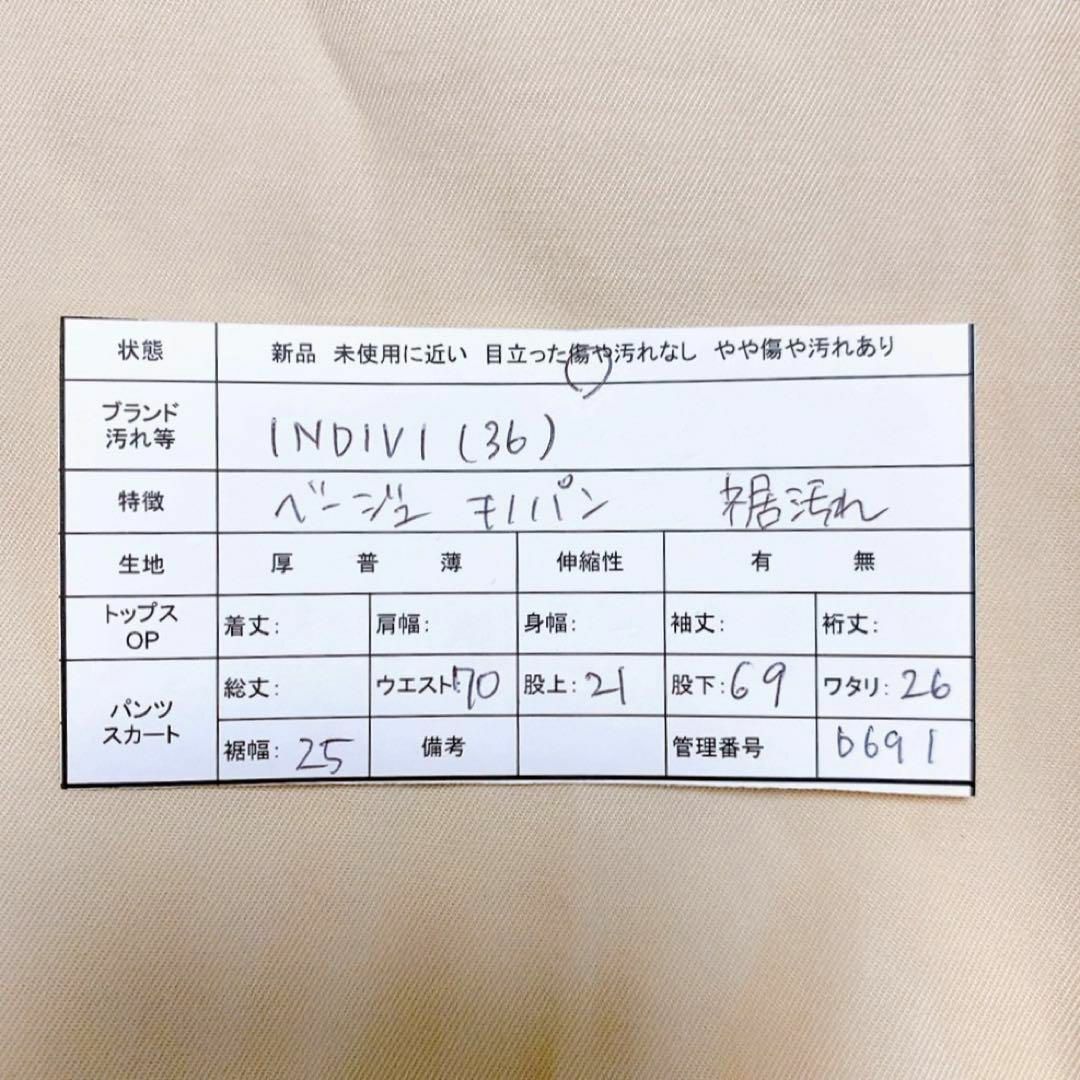 状態 新品 未使用に近い 目立った傷や汚れなし やや傷や汚れあり
ブランド
汚れ等 INDIVI (36)
特徴 ベージュ モノパン 裾汚れ
生地 厚 普 薄 伸縮性 有 無
トップス
OP 着丈: 肩幅: 身幅: 袖丈: 裄丈:
パンツ
スカート 総丈: ウエスト:70 股上:21 股下:69 ワタリ:26
裾幅: 25 備考 管理番号 b691